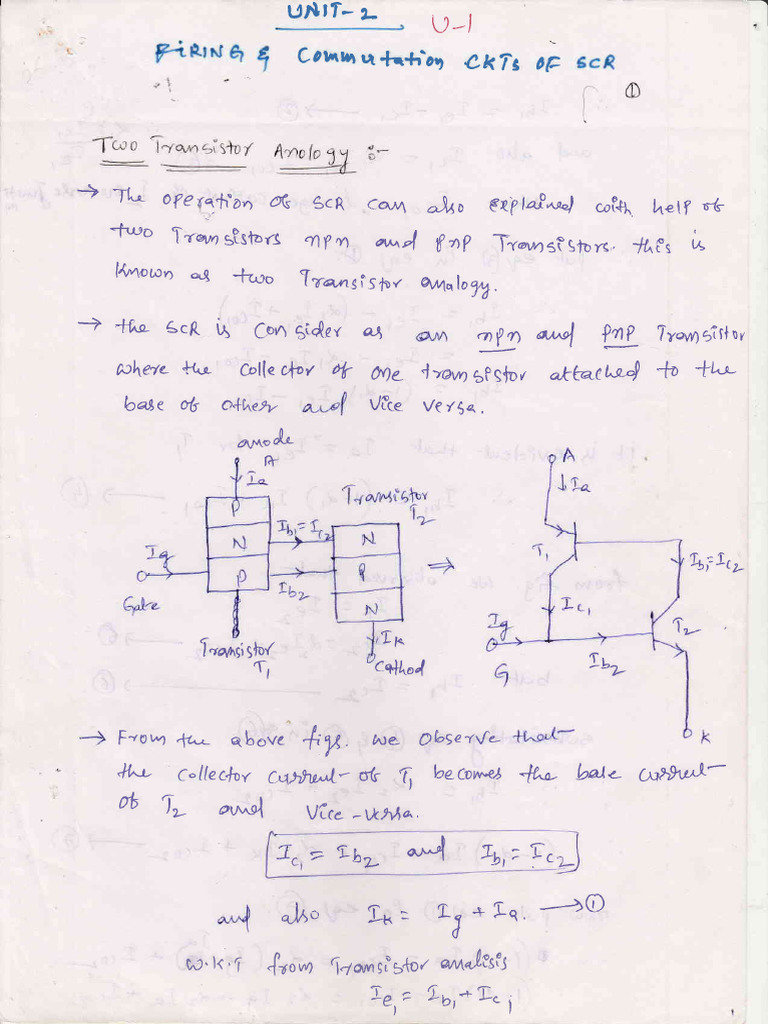 UNIT-2
U-1
FIRING & Commutation CKTs OF SCR
①
Two Transistor Anology :-
→ The operation of SCR can also explained with help of
two Transistors npn and pnp Transistors. this is
known as two Transistor analogy.
→ the SCR is Consider as an npn and pnp Transistor
where the collector of one transistor attached to the
base of other and Vice versa.
anode
A
Ia
P
N
P
Ig
Gate
Transistor
T1
Ib1 = Ic2
Ib2
Transistor
T2
N
P
N
IK
Cathod
⇒
A
Ia
T1
Ib1 = Ic2
Ic1
Ig
G
Ib2
T2
K
→ From the above figs. we observe that
the collector current of T1 becomes the base current
of T2 and Vice-versa.
Ic1 = Ib2 and Ib1 = Ic2
and also IK = Ig + Ia. → ①
W.K.T from Transistor analisis
Ie1 = Ib1 + Ic1